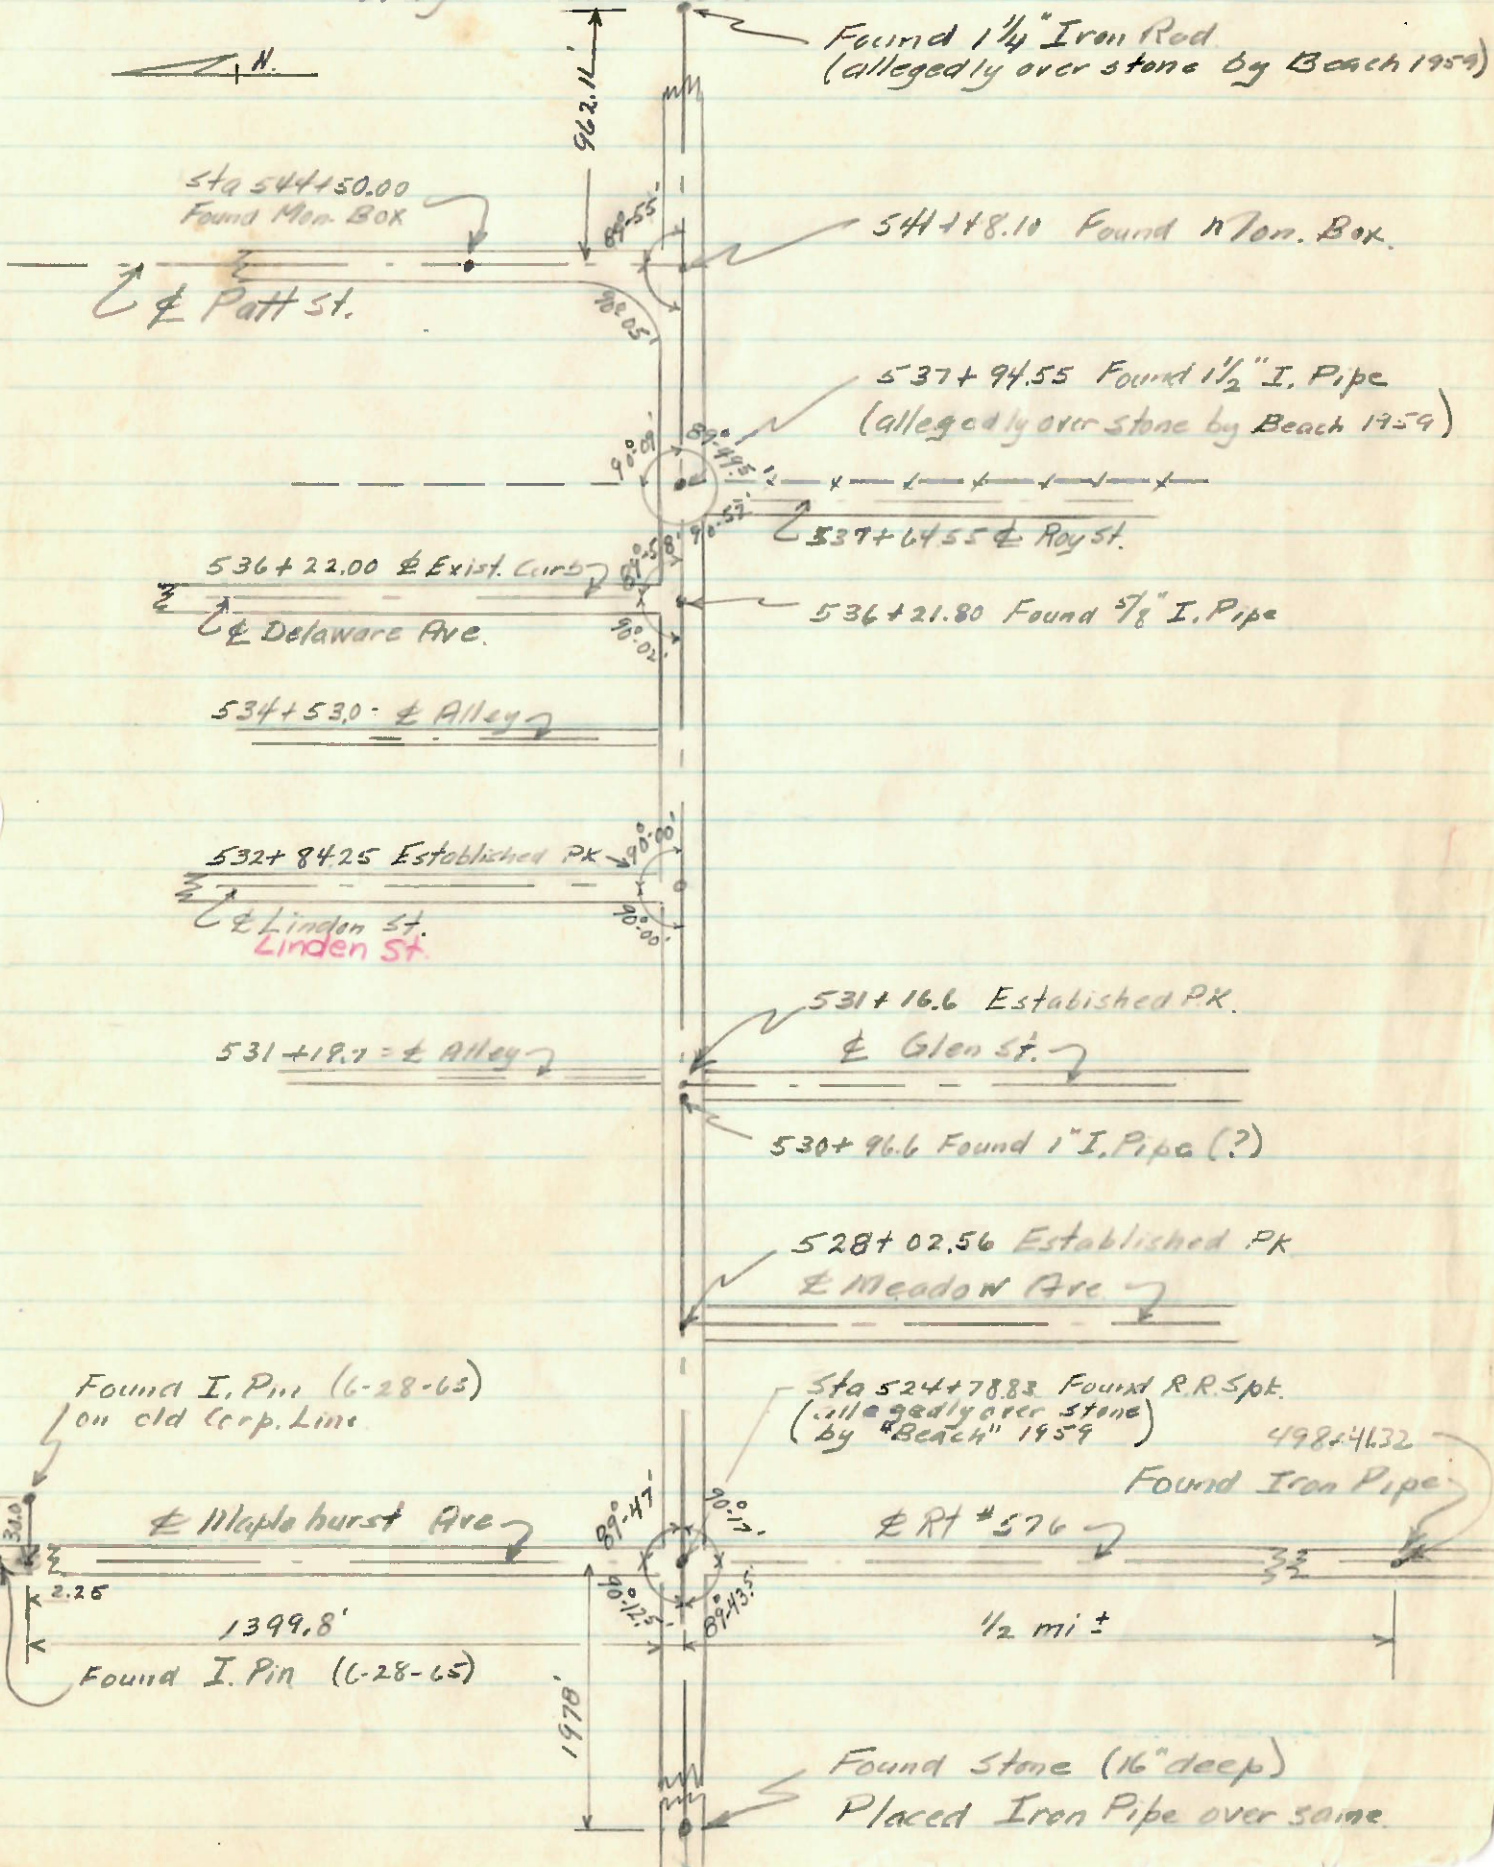 Found 1 1/4" Iron Rod
(allegedly over stone by Beach 1959)
N.
962.11'
Sta 544+50.00
Found Mon. Box
89°-55'
541+18.10 Found Mon. Box.
℄ Patt St.
90°-05'
537+94.55 Found 1 1/2" I. Pipe
(allegedly over stone by Beach 1959)
90°-09'
89°-49.5'
90°-57'
537+64.55 ℄ Roy St.
536+22.00 ℄ Exist. Curb
89°-58'
℄ Delaware Ave.
90°-02'
536+21.80 Found 5/8" I. Pipe
534+53.0 = ℄ Alley
532+84.25 Established PK
90°-00'
℄ Lindon St.
Linden St.
90°-00'
531+16.6 Estabished P.K.
℄ Glen St.
531+19.7 = ℄ Alley
530+96.6 Found 1" I. Pipe (?)
528+02.56 Established PK
℄ Meadow Ave
Found I. Pin (6-28-65)
on old Corp. Line
Sta 524+78.83 Found R.R. Spk.
(allegedly over stone
by "Beach" 1959)
498+41.32
Found Iron Pipe
30.0
℄ Maplehurst Ave
89°-47'
90°-17'
℄ Rt #576
90°-12.5'
89°-43.5'
2.25
1399.8'
1/2 mi ±
Found I. Pin (6-28-65)
1978'
Found Stone (16" deep)
Placed Iron Pipe over same.